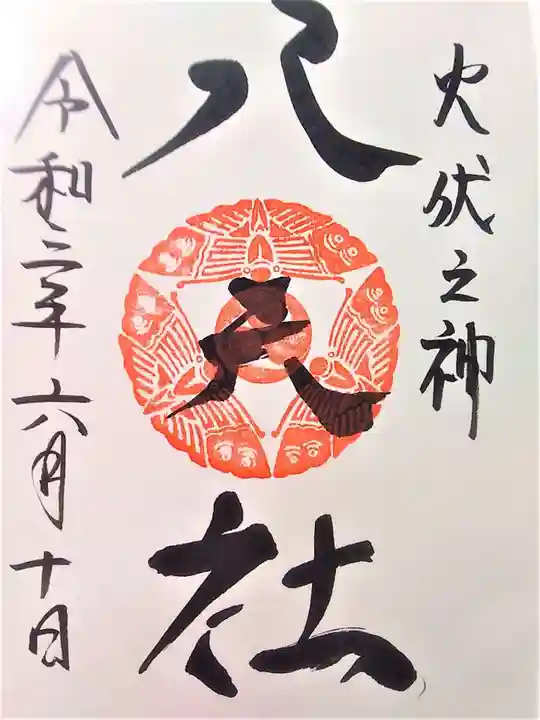 火伏之神
八咫社
令和三年六月十日